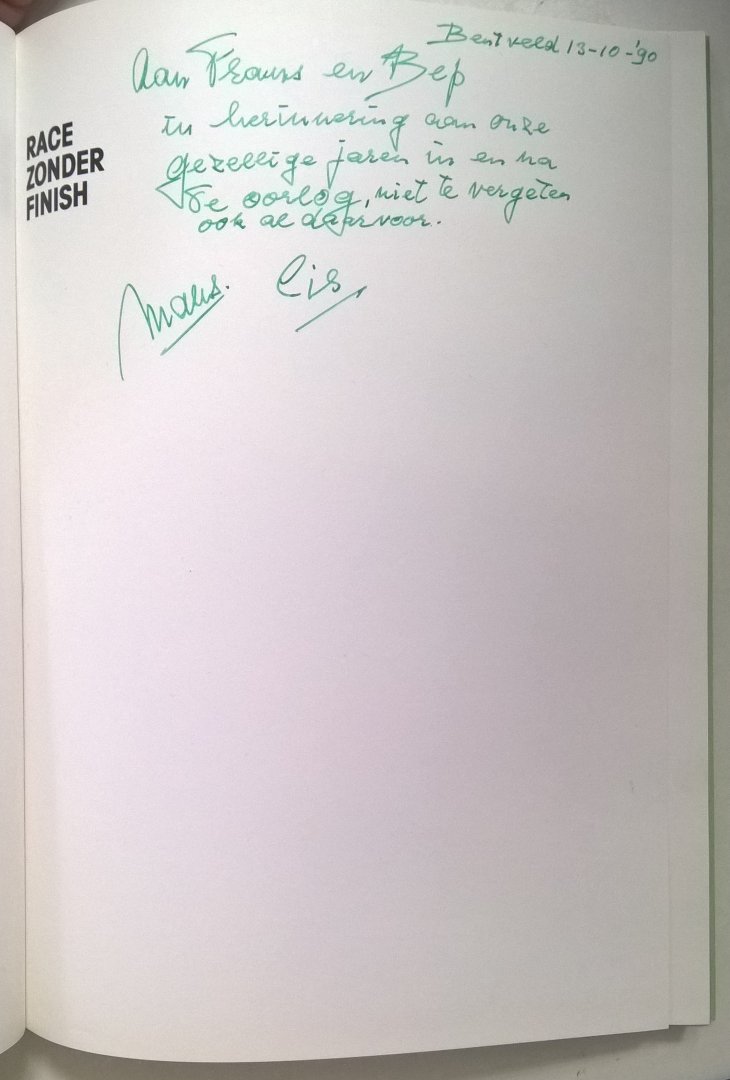 Bentveld 13-10-'90
Aan Frans en Bep
in herinnering aan onze
gezellige jaren in en na
de oorlog, niet te vergeten
ook al daarvoor.
Maus. Cis
RACE
ZONDER
FINISH